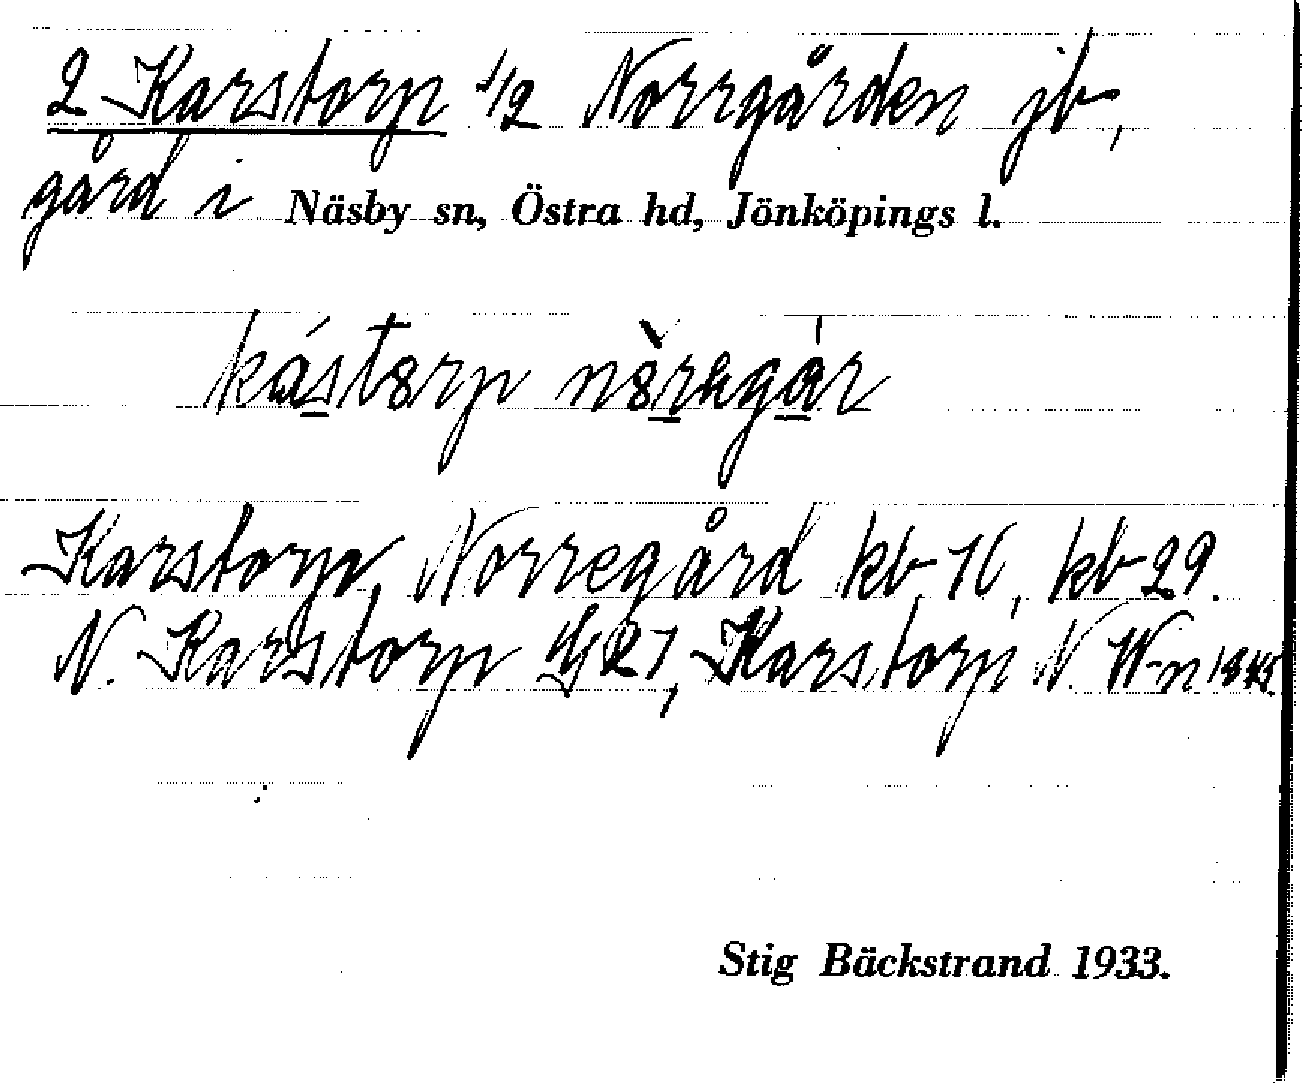 2 Karstorp 1/2 Norrgården jb,
gård i Näsby sn, Östra hd, Jönköpings l.
kástorp norregár
Karstorp, Norregård kb 11, kb 29.
N. Karstorp 27, Karstorp N. W-n 1845
Stig Bäckstrand 1933.